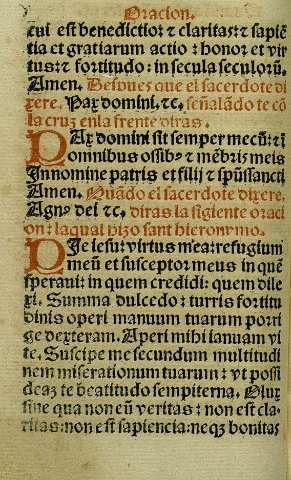 Oracion.
cui est benedictio: ⁊ claritas: ⁊ sapiē
tia et gratiarum actio: honor et vir
tus: ⁊ fortitudo: in secula seculorū.
Amen. Despues que el sacerdote di
xere. Pax domini, ⁊c. señalādo te cō
la cruz enla frente diras.
PAx domini sit semper mecū: ⁊ ī
omnibus ossibꝰ ⁊ mēbris meis
In nomine patris et filij ⁊ spūssancti
Amen. Quādo el sacerdote dixere.
Agnꝰ dei ⁊c. diras la sigiente oraci
on: laqual hizo sant hieronymo.
PIe iesu: virtus mea: refugium
meū et susceptor meus in quē
speraui: in quem credidi: quem dile
xi. Summa dulcedo: turris fortitu
dinis operi manuum tuarum porri
ge dexteram. Aperi mihi ianuam vi
te. Suscipe me secundum multitudi
nem miserationum tuarum: vt possi
deaz te beatitudo sempiterna. O lux
sine qua non eū veritas: non est cla
ritas: non est sapiencia: neqꝫ bonitas